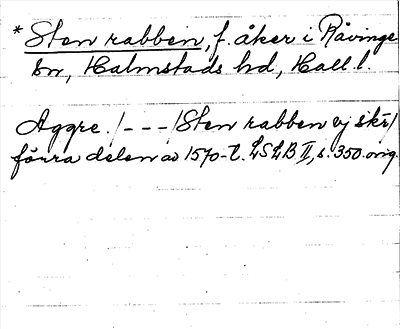 * Sten rabben, f. åker i Rävinge
sn, Halmstads hd, Hall. l.
Aggre. /---/ Sten rabben ej skr/
förra delen av 1570-t. LSLB II, s. 350. orig.